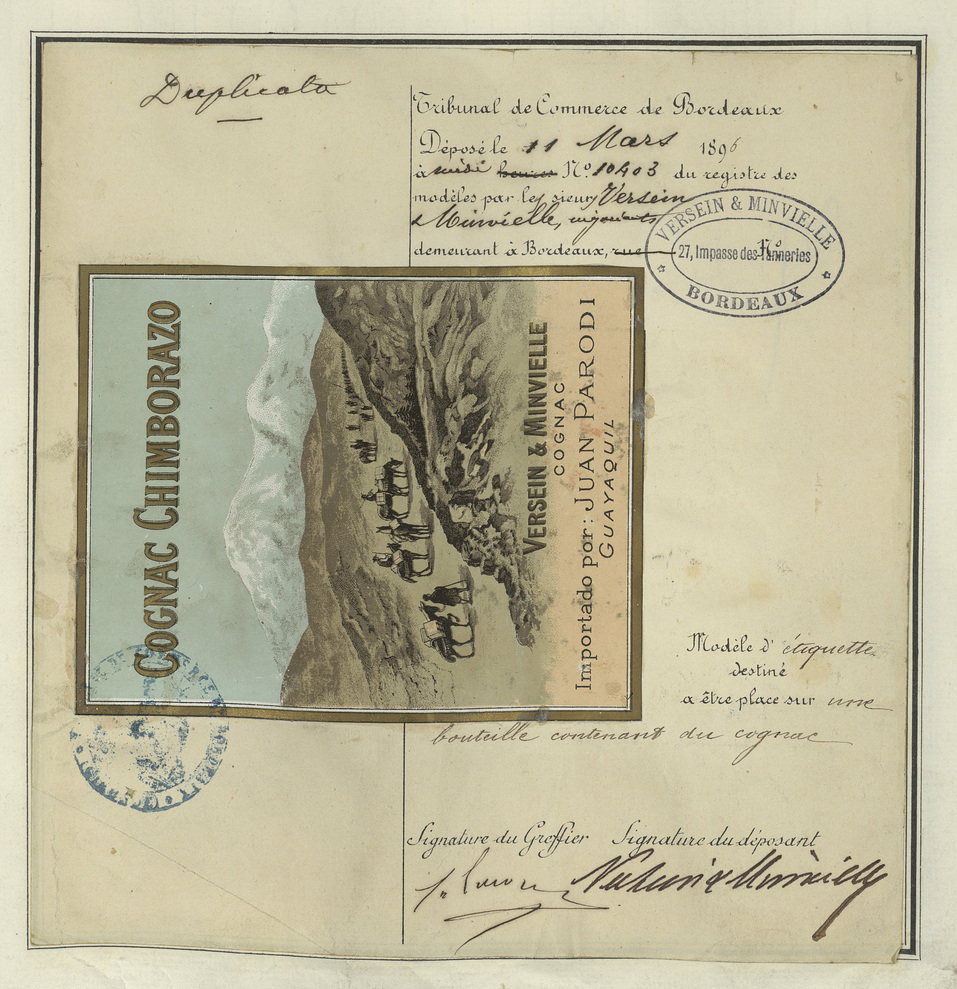 Duplicata
Tribunal de Commerce de Bordeaux
Déposé le 11 Mars 1896
à midi heures N° 10403 du registre des
modèles par les sieurs Versein
& Minvielle, négociants
demeurant à Bordeaux, rue N°
VERSEIN & MINVIELLE
27, Impasse des Tanneries
BORDEAUX
COGNAC CHIMBORAZO
VERSEIN & MINVIELLE
COGNAC
Importado por: JUAN PARODI
GUAYAQUIL
Modèle d'étiquette
destiné
a être place sur une
bouteille contenant du cognac
Signature du Greffier Signature du déposant
Versein & Minvielle